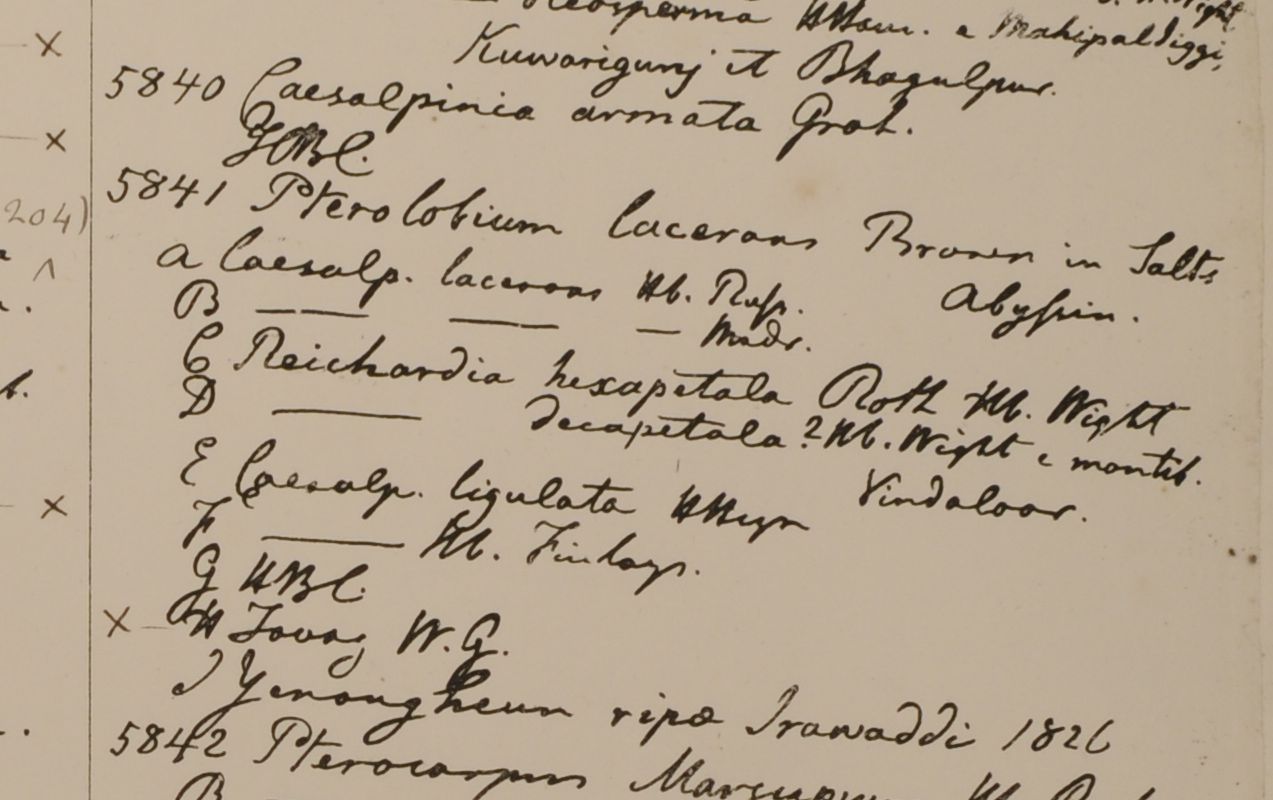 HHam. e Mahipaldiggi,
Kuwarigunj et Bhagulpur.
5840 Caesalpinia armata Grah.
HBC.
204)
5841 Pterolobium lacerans Brown in Salt's
Abyssin.
a Caesalp. lacerans Hb. Russ.
B — — — Madr.
C Reichardia hexapetala Roth Hb. Wight
D — decapetala? Hb. Wight e montib.
Vindaloor.
E Caesalp. ligulata HHeyn
F — Hb. Finlays.
G HBC.
H Tavoy W.G.
I Yenongheun ripæ Irawaddi 1826
5842 Pterocarpus Marsupium
B